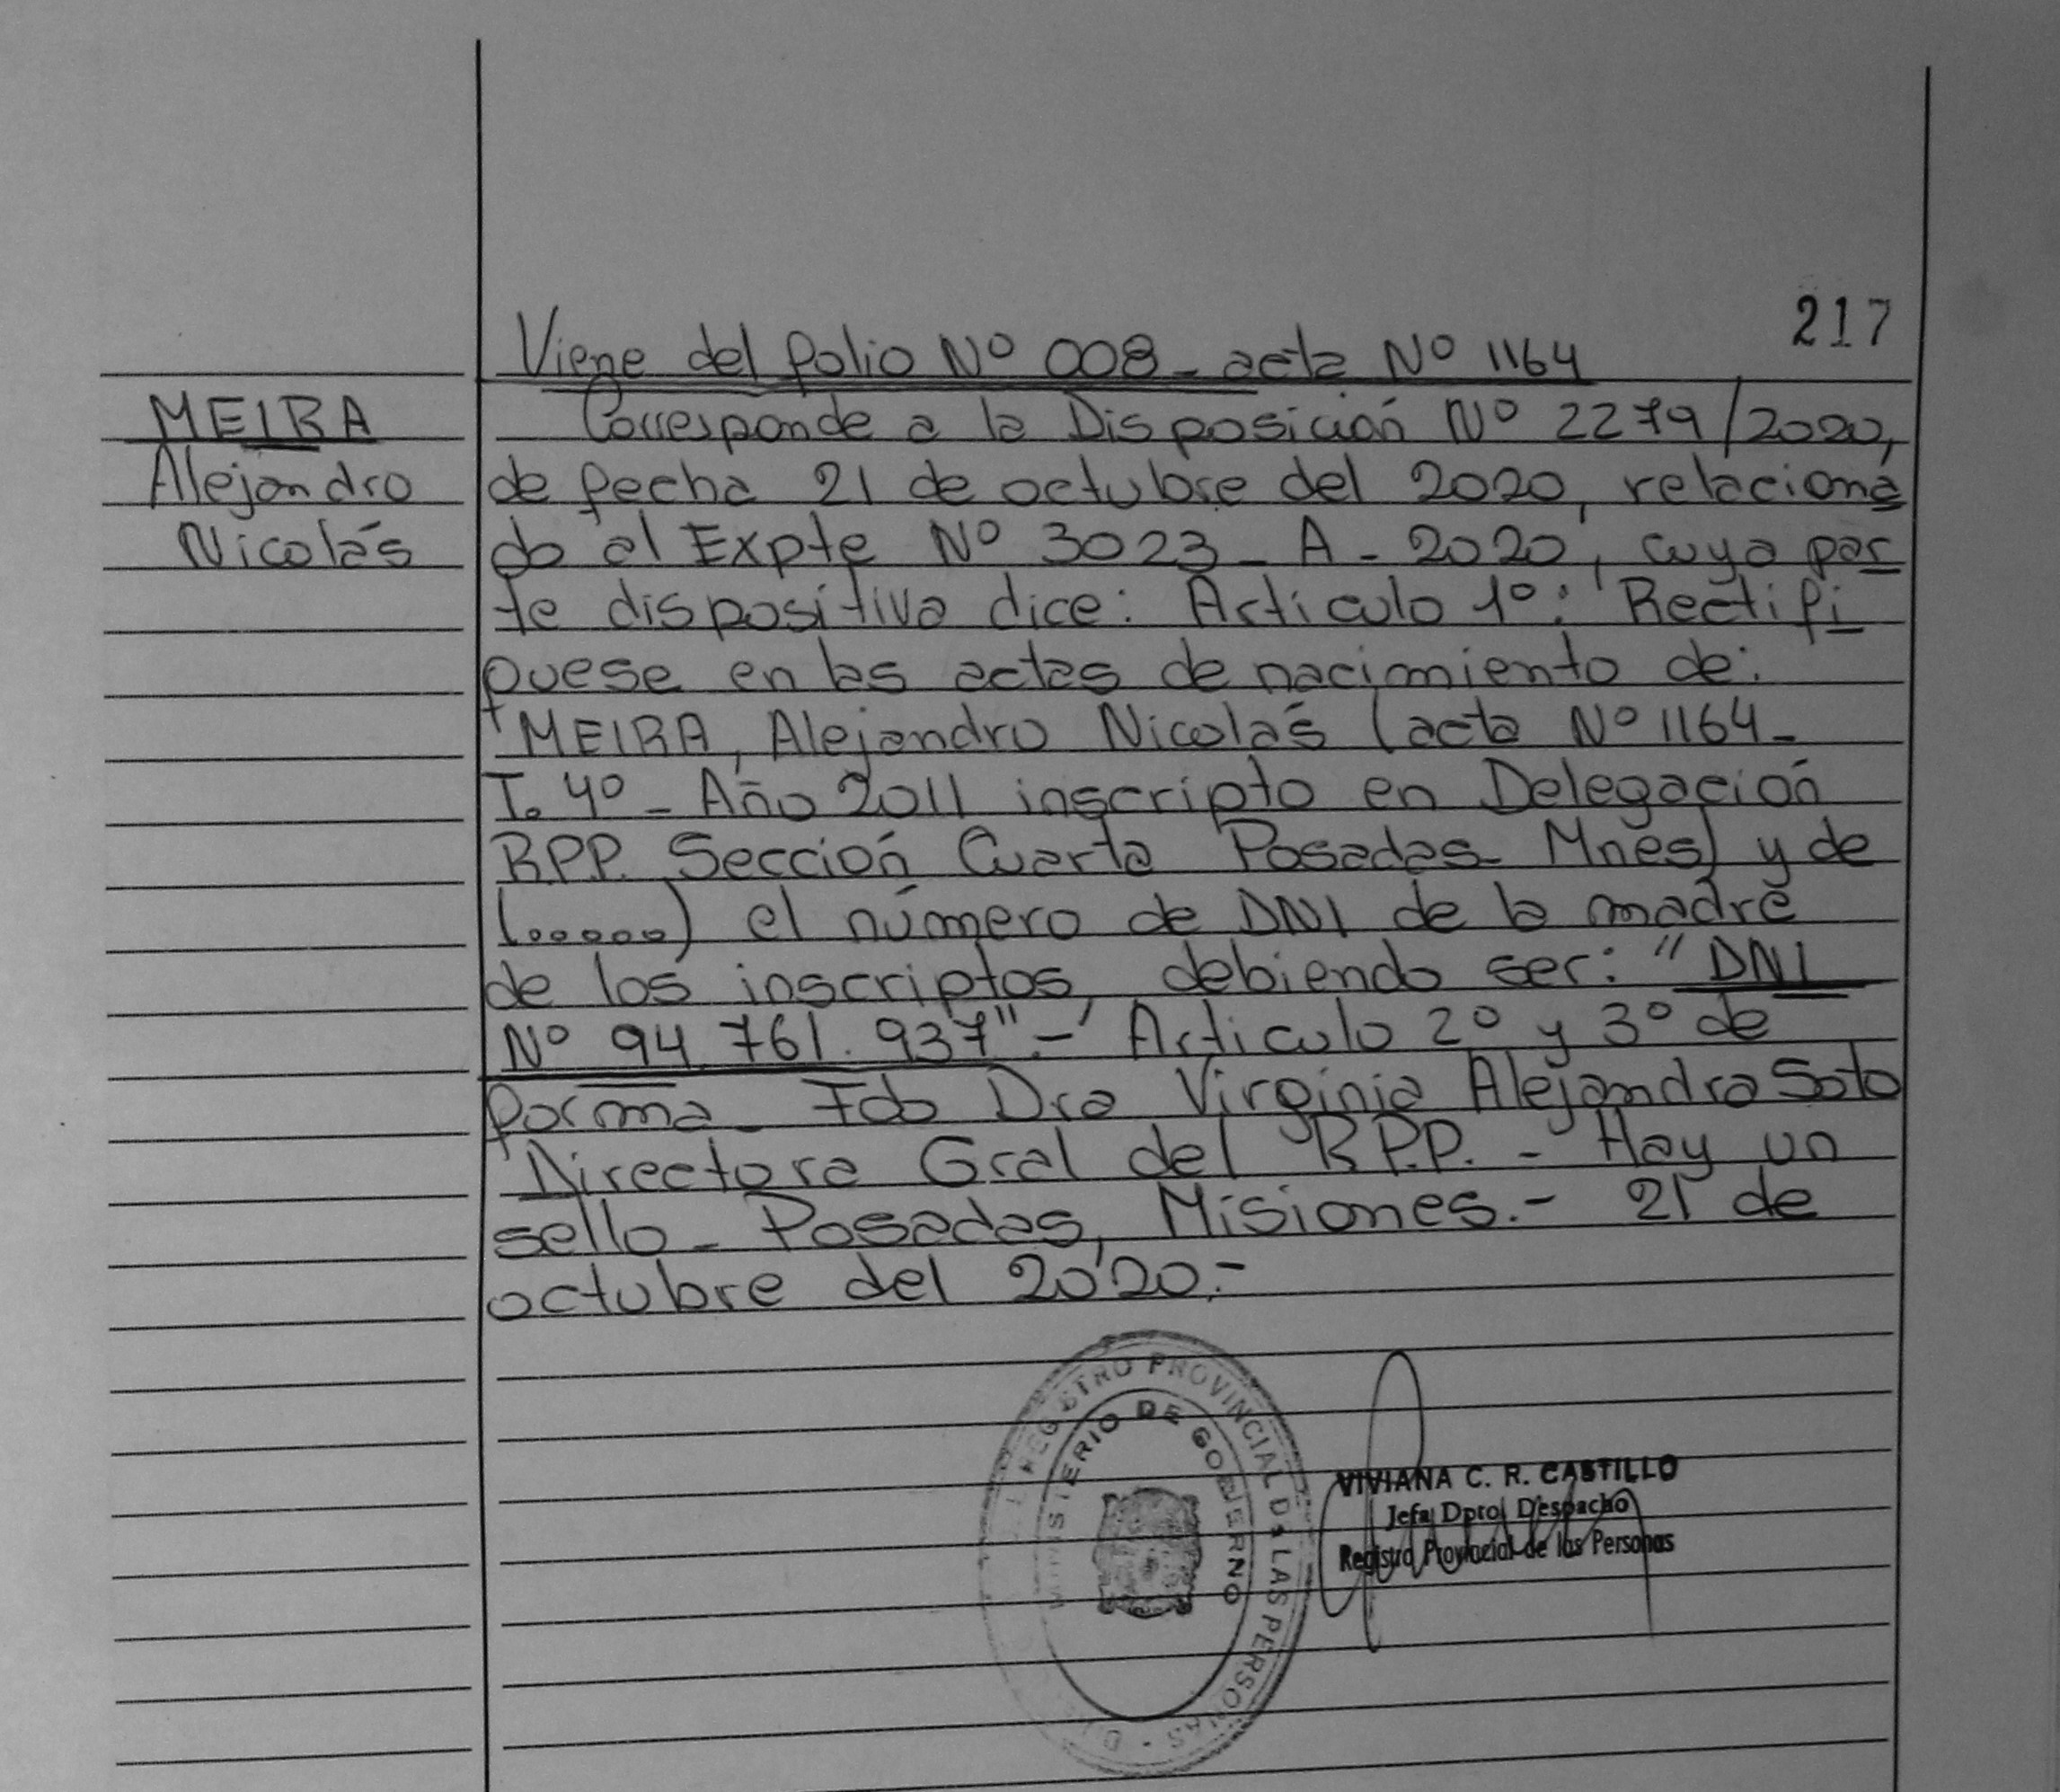 217
Viene del folio Nº 008 - acta Nº 1164
MEIRA
Alejandro
Nicolás
Corresponde a la Disposición Nº 2279/2020,
de fecha 21 de octubre del 2020, relaciona
do al Expte Nº 3023 - A - 2020, cuya par
te dispositiva dice: Articulo 1º: Rectifi
quese en las actas de nacimiento de:
MEIRA, Alejandro Nicolás (acta Nº 1164 -
T. 4º - Año 2011 inscripto en Delegación
R.P.P. Sección Cuarta Posadas - Mnes) y de
(......) el número de DNI de la madre
de los inscriptos, debiendo ser: "DNI
Nº 94.761.937".- Articulo 2º y 3º de
forma - Fdo Dra Virginia Alejandra Soto
Directora Gral del R.P.P. - Hay un
sello - Posadas, Misiones.- 21 de
octubre del 2020.-
REGISTRO PROVINCIAL DE LAS PERSONAS
MINISTERIO DE GOBIERNO
VIVIANA C. R. CASTILLO
Jefa Dpto. Despacho
Registro Provincial de las Personas